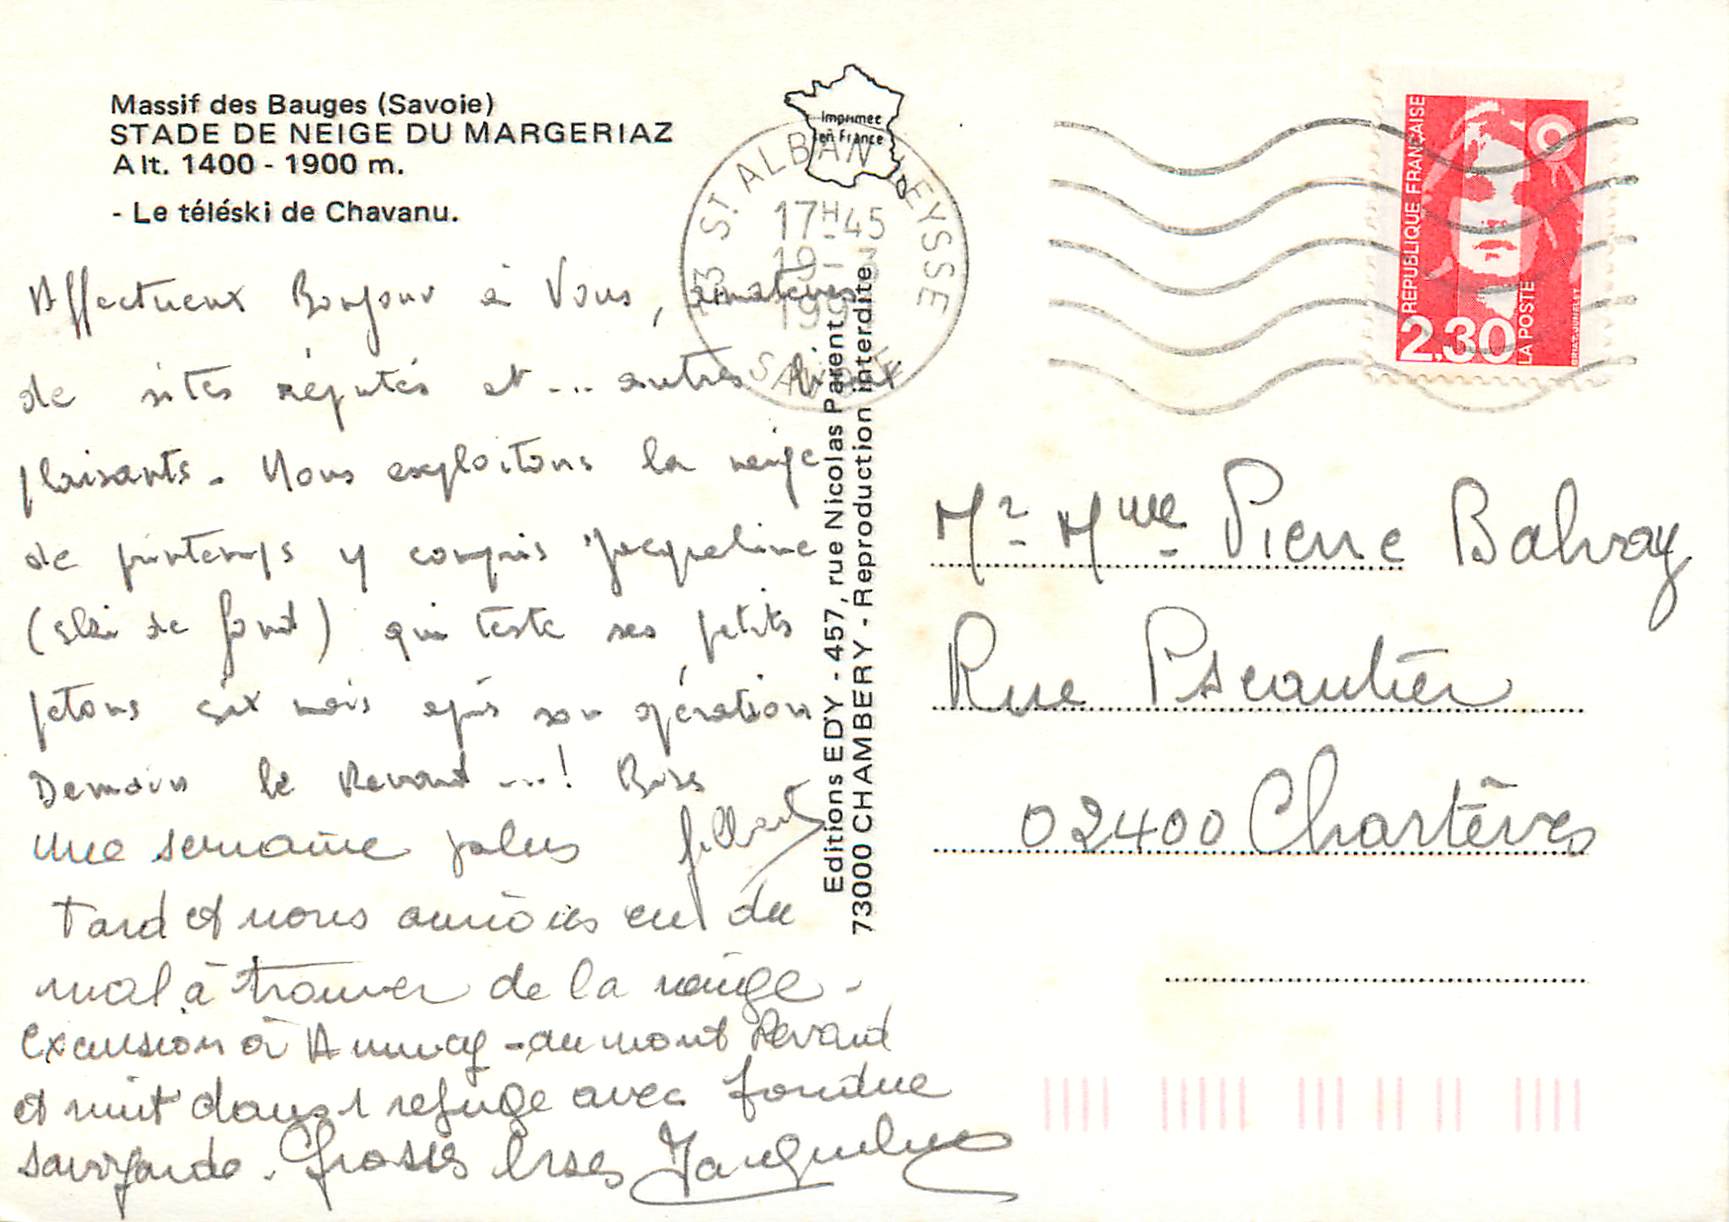 Massif des Bauges (Savoie)
STADE DE NEIGE DU MARGERIAZ
Alt. 1400 - 1900 m.
- Le téléski de Chavanu.
Affectueux Bonjour à Vous, amateurs
de sites réputés et ... autres lieux
plaisants. Nous exploitons la neige
de printemps y compris Jacqueline
(ski de fond) qui teste ses petits
petons six mois après son opération
Demain le Revard ...! Bises
Gilbert
une semaine plus
tard et nous aurions eu du
mal à trouver de la neige -
excursion à Annecy - au mont Revard
et nuit dans 1 refuge avec fondue
savoyarde. Grosses bises Jacqueline
Imprimée
en France
73 ST ALBAN LEYSSE
17H45
19 - 3
199
SAVOIE
Editions EDY - 457, rue Nicolas Parent
73000 CHAMBERY - Reproduction interdite
REPUBLIQUE FRANÇAISE
2,30
LA POSTE
BRIAT.JUMELET
Mr Mme Pierre Balvay
Rue
02400 Chartèves